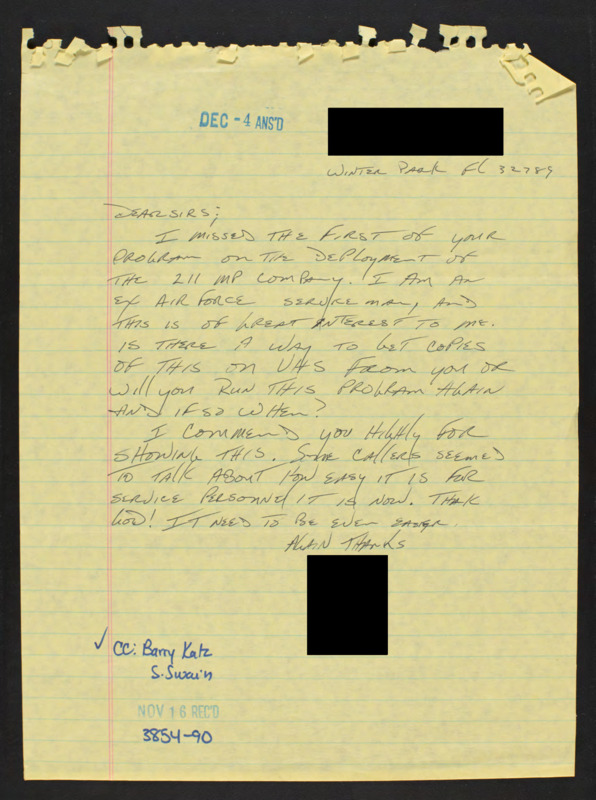 DEC -4 ANS'D
WINTER PARK FL 32789
DEAR SIRS;
I MISSED THE FIRST OF YOUR
PROGRAM ON THE DEPLOYMENT OF
THE 211 MP COMPANY. I AM AN
EX AIR FORCE SERVICE MAN, AND
THIS IS OF GREAT INTEREST TO ME.
IS THERE A WAY TO GET COPIES
OF THIS ON VHS FROM YOU OR
WILL YOU RUN THIS PROGRAM AGAIN
AND IF SO WHEN?
I COMMEND YOU HIGHLY FOR
SHOWING THIS. SOME CALLERS SEEMED
TO TALK ABOUT HOW EASY IT IS FOR
SERVICE PERSONNEL IT IS NOW. THANK
GOD! IT NEED TO BE EVEN EASIER.
AGAIN THANKS
✓ CC: Barry Katz
S. Swain
NOV 16 REC'D
3854-90